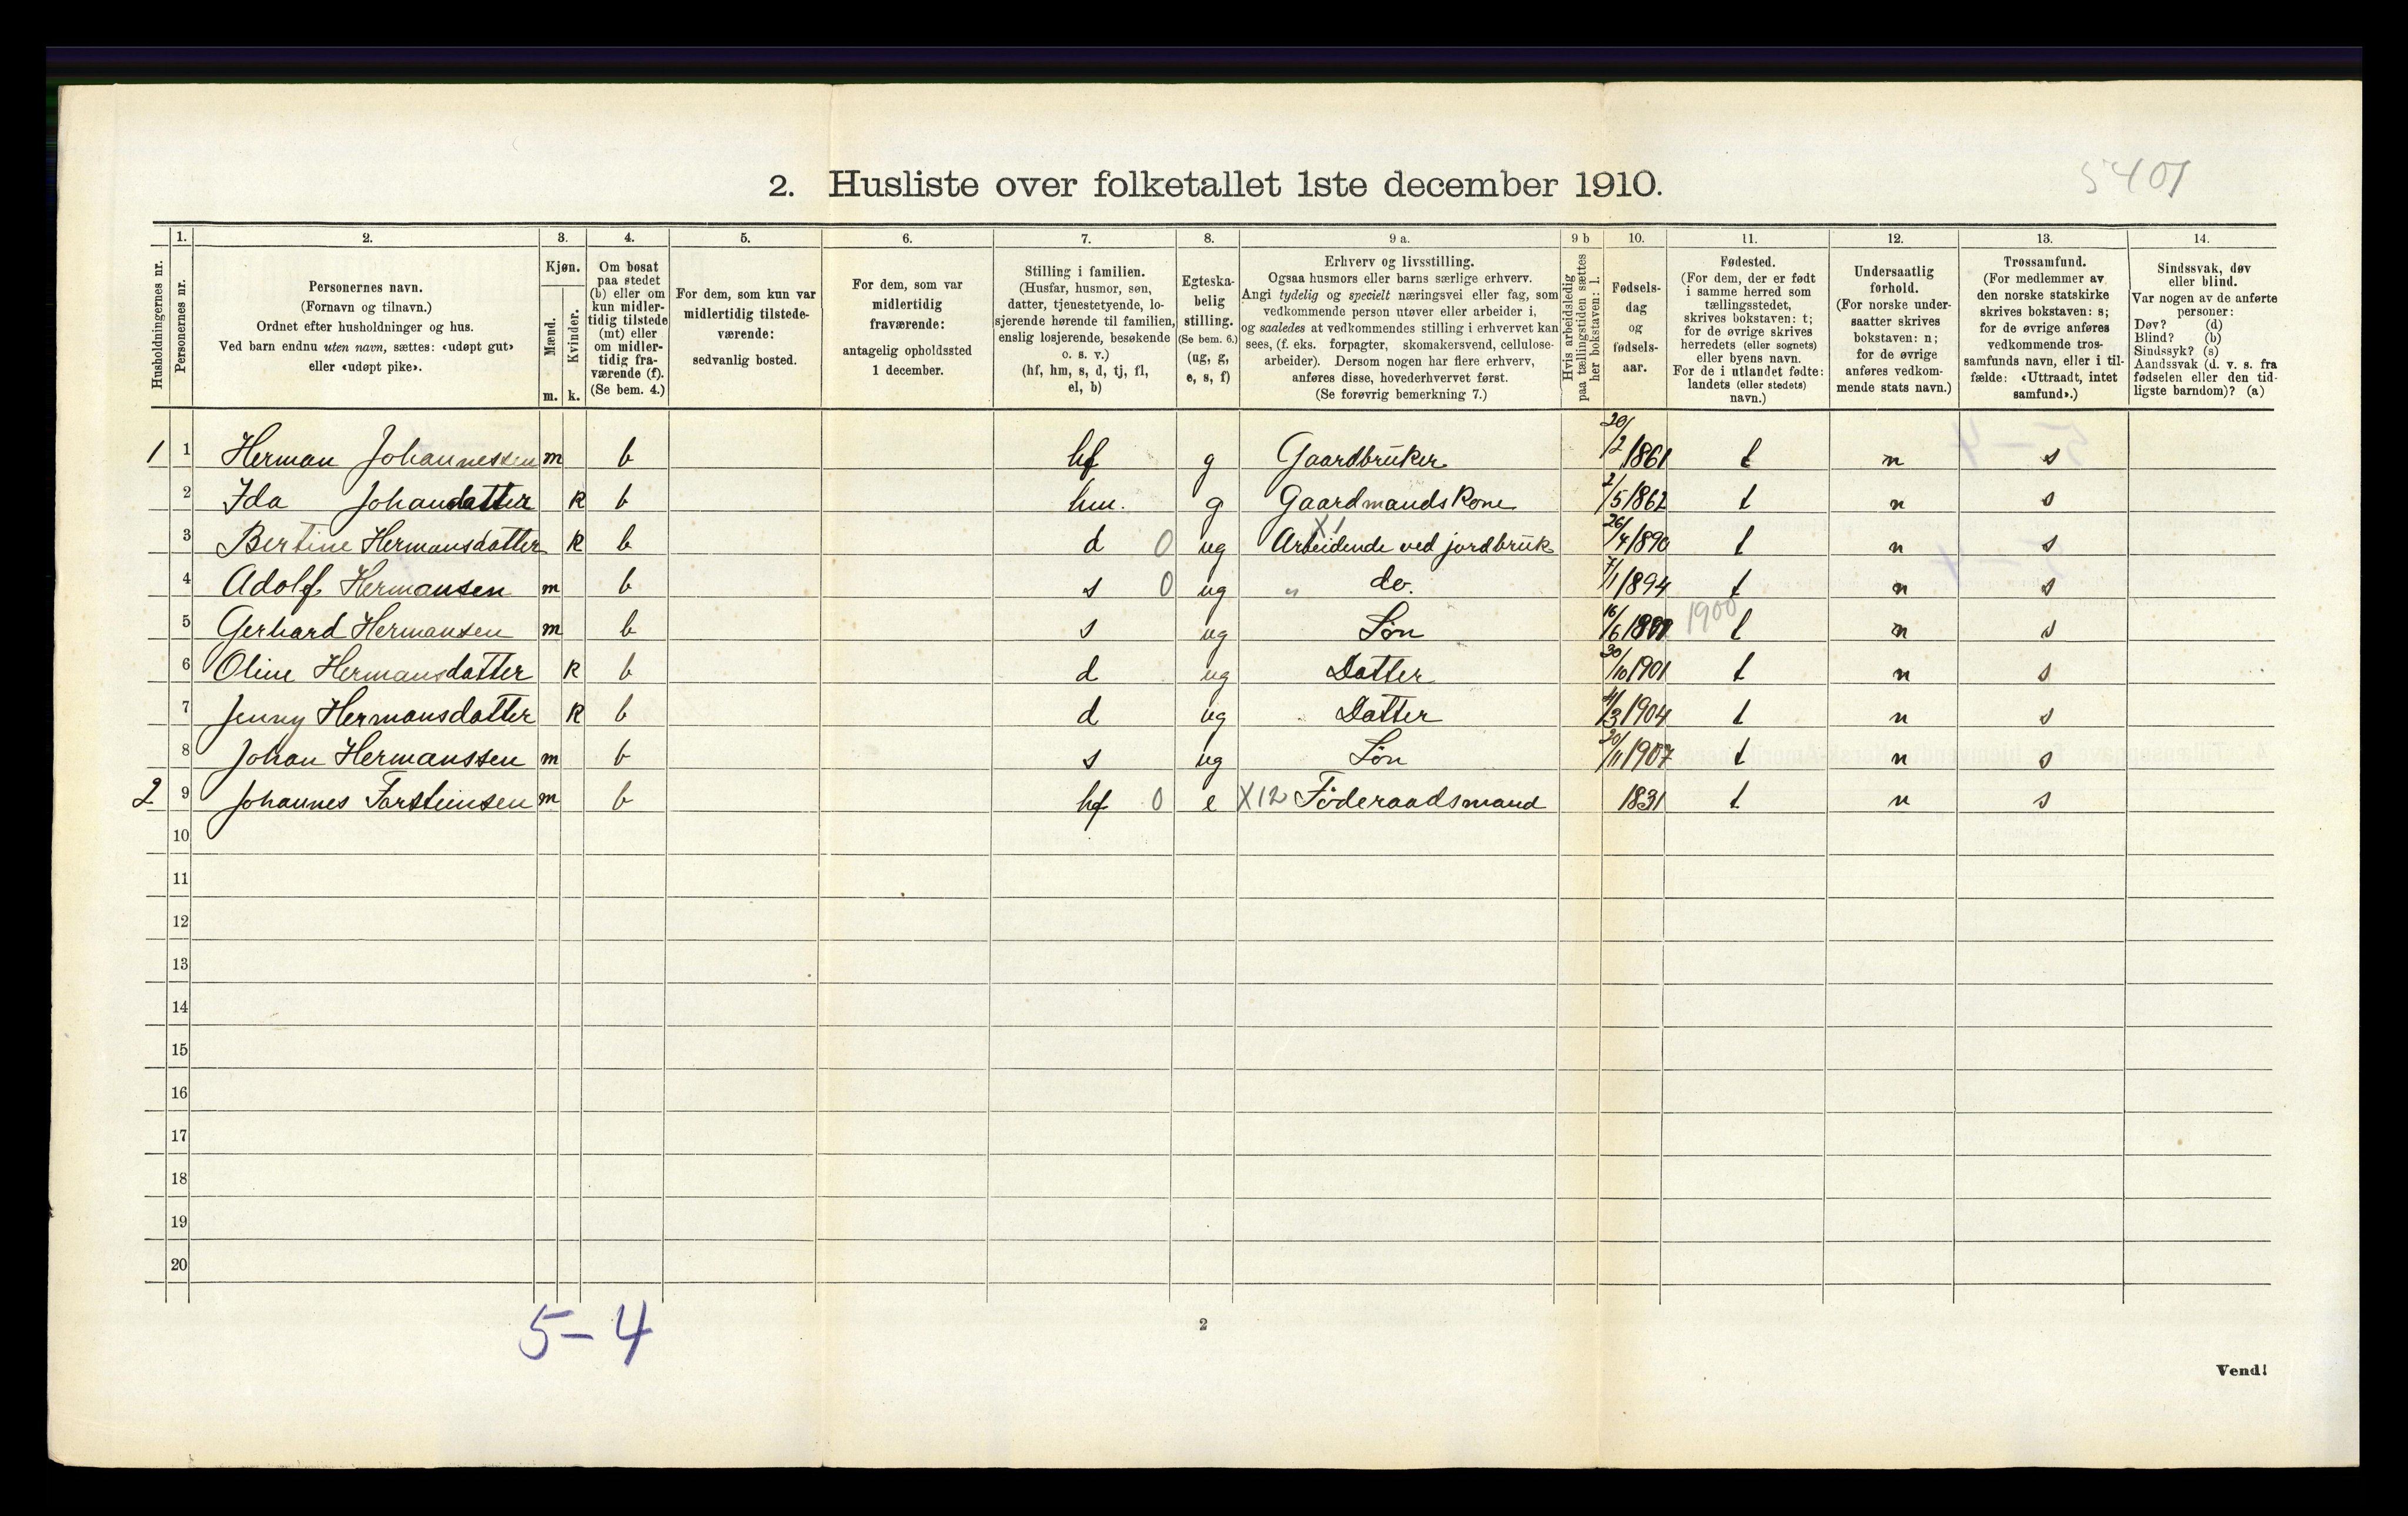 5401
2. Husliste over folketallet 1ste december 1910.
Husholdningernes nr.
1. Personernes nr.
2. Personernes navn. (Fornavn og tilnavn.) Ordnet efter husholdninger og hus. Ved barn endnu uten navn, sættes: «udøpt gut» eller «udøpt pike».
3. Kjøn. Mænd. m. Kvinder. k.
4. Om bosat paa stedet (b) eller om kun midlertidig tilstede (mt) eller om midlertidig fraværende (f). (Se bem. 4.)
5. For dem, som kun var midlertidig tilstedeværende: sedvanlig bosted.
6. For dem, som var midlertidig fraværende: antagelig opholdssted 1 december.
7. Stilling i familien. (Husfar, husmor, søn, datter, tjenestetyende, losjerende hørende til familien, enslig losjerende, besøkende o. s. v.) (hf, hm, s, d, tj, fl, el, b)
8. Egteskabelig stilling. (Se bem. 6.) (ug, g, e, s, f)
9 a. Erhverv og livsstilling. Ogsaa husmors eller barns særlige erhverv. Angi tydelig og specielt næringsvei eller fag, som vedkommende person utøver eller arbeider i, og saaledes at vedkommendes stilling i erhvervet kan sees, (f. eks. forpagter, skomakersvend, cellulosearbeider). Dersom nogen har flere erhverv, anføres disse, hovederhvervet først. (Se forøvrig bemerkning 7.)
9 b Hvis arbeidsledig paa tællingstiden sættes her bokstaven: l.
10. Fødselsdag og fødselsaar.
11. Fødested. (For dem, der er født i samme herred som tællingsstedet, skrives bokstaven: t; for de øvrige skrives herredets (eller sognets) eller byens navn. For de i utlandet fødte: landets (eller stedets) navn.)
12. Undersaatlig forhold. (For norske undersaatter skrives bokstaven: n; for de øvrige anføres vedkommende stats navn.)
13. Trossamfund. (For medlemmer av den norske statskirke skrives bokstaven: s; for de øvrige anføres vedkommende trossamfunds navn, eller i tilfælde: «Uttraadt, intet samfund».)
14. Sindssvak, døv eller blind. Var nogen av de anførte personer: Døv? (d) Blind? (b) Sindssyk? (s) Aandssvak (d. v. s. fra fødselen eller den tidligste barndom)? (a)
1 1 Herman Johannessen m b hf g Gaardbruker 20/2 1861 t n s
2 Ida Johansdatter k b hm. g Gaardmandskone 2/5 1862 t n s
3 Bertine Hermansdatter k b d 0 ug X1 Arbeidende ved jordbruk 26/4 1890 t n s
4 Adolf Hermansen m b s 0 ug " do. 7/1 1894 t n s
5 Gerhard Hermansen m b s ug Søn 16/6 1900 t n s
6 Oline Hermansdatter k b d ug Datter 30/10 1901 t n s
7 Jenny Hermansdatter k b d ug Datter 4/3 1904 t n s
8 Johan Hermanssen m b s ug Søn 20/11 1907 t n s
2 9 Johannes Torsteinsen m b hf 0 e X12 Føderaadsmand 1831 t n s
10
11
12
13
14
15
16
17
18
19
20
5-4
2
Vend!